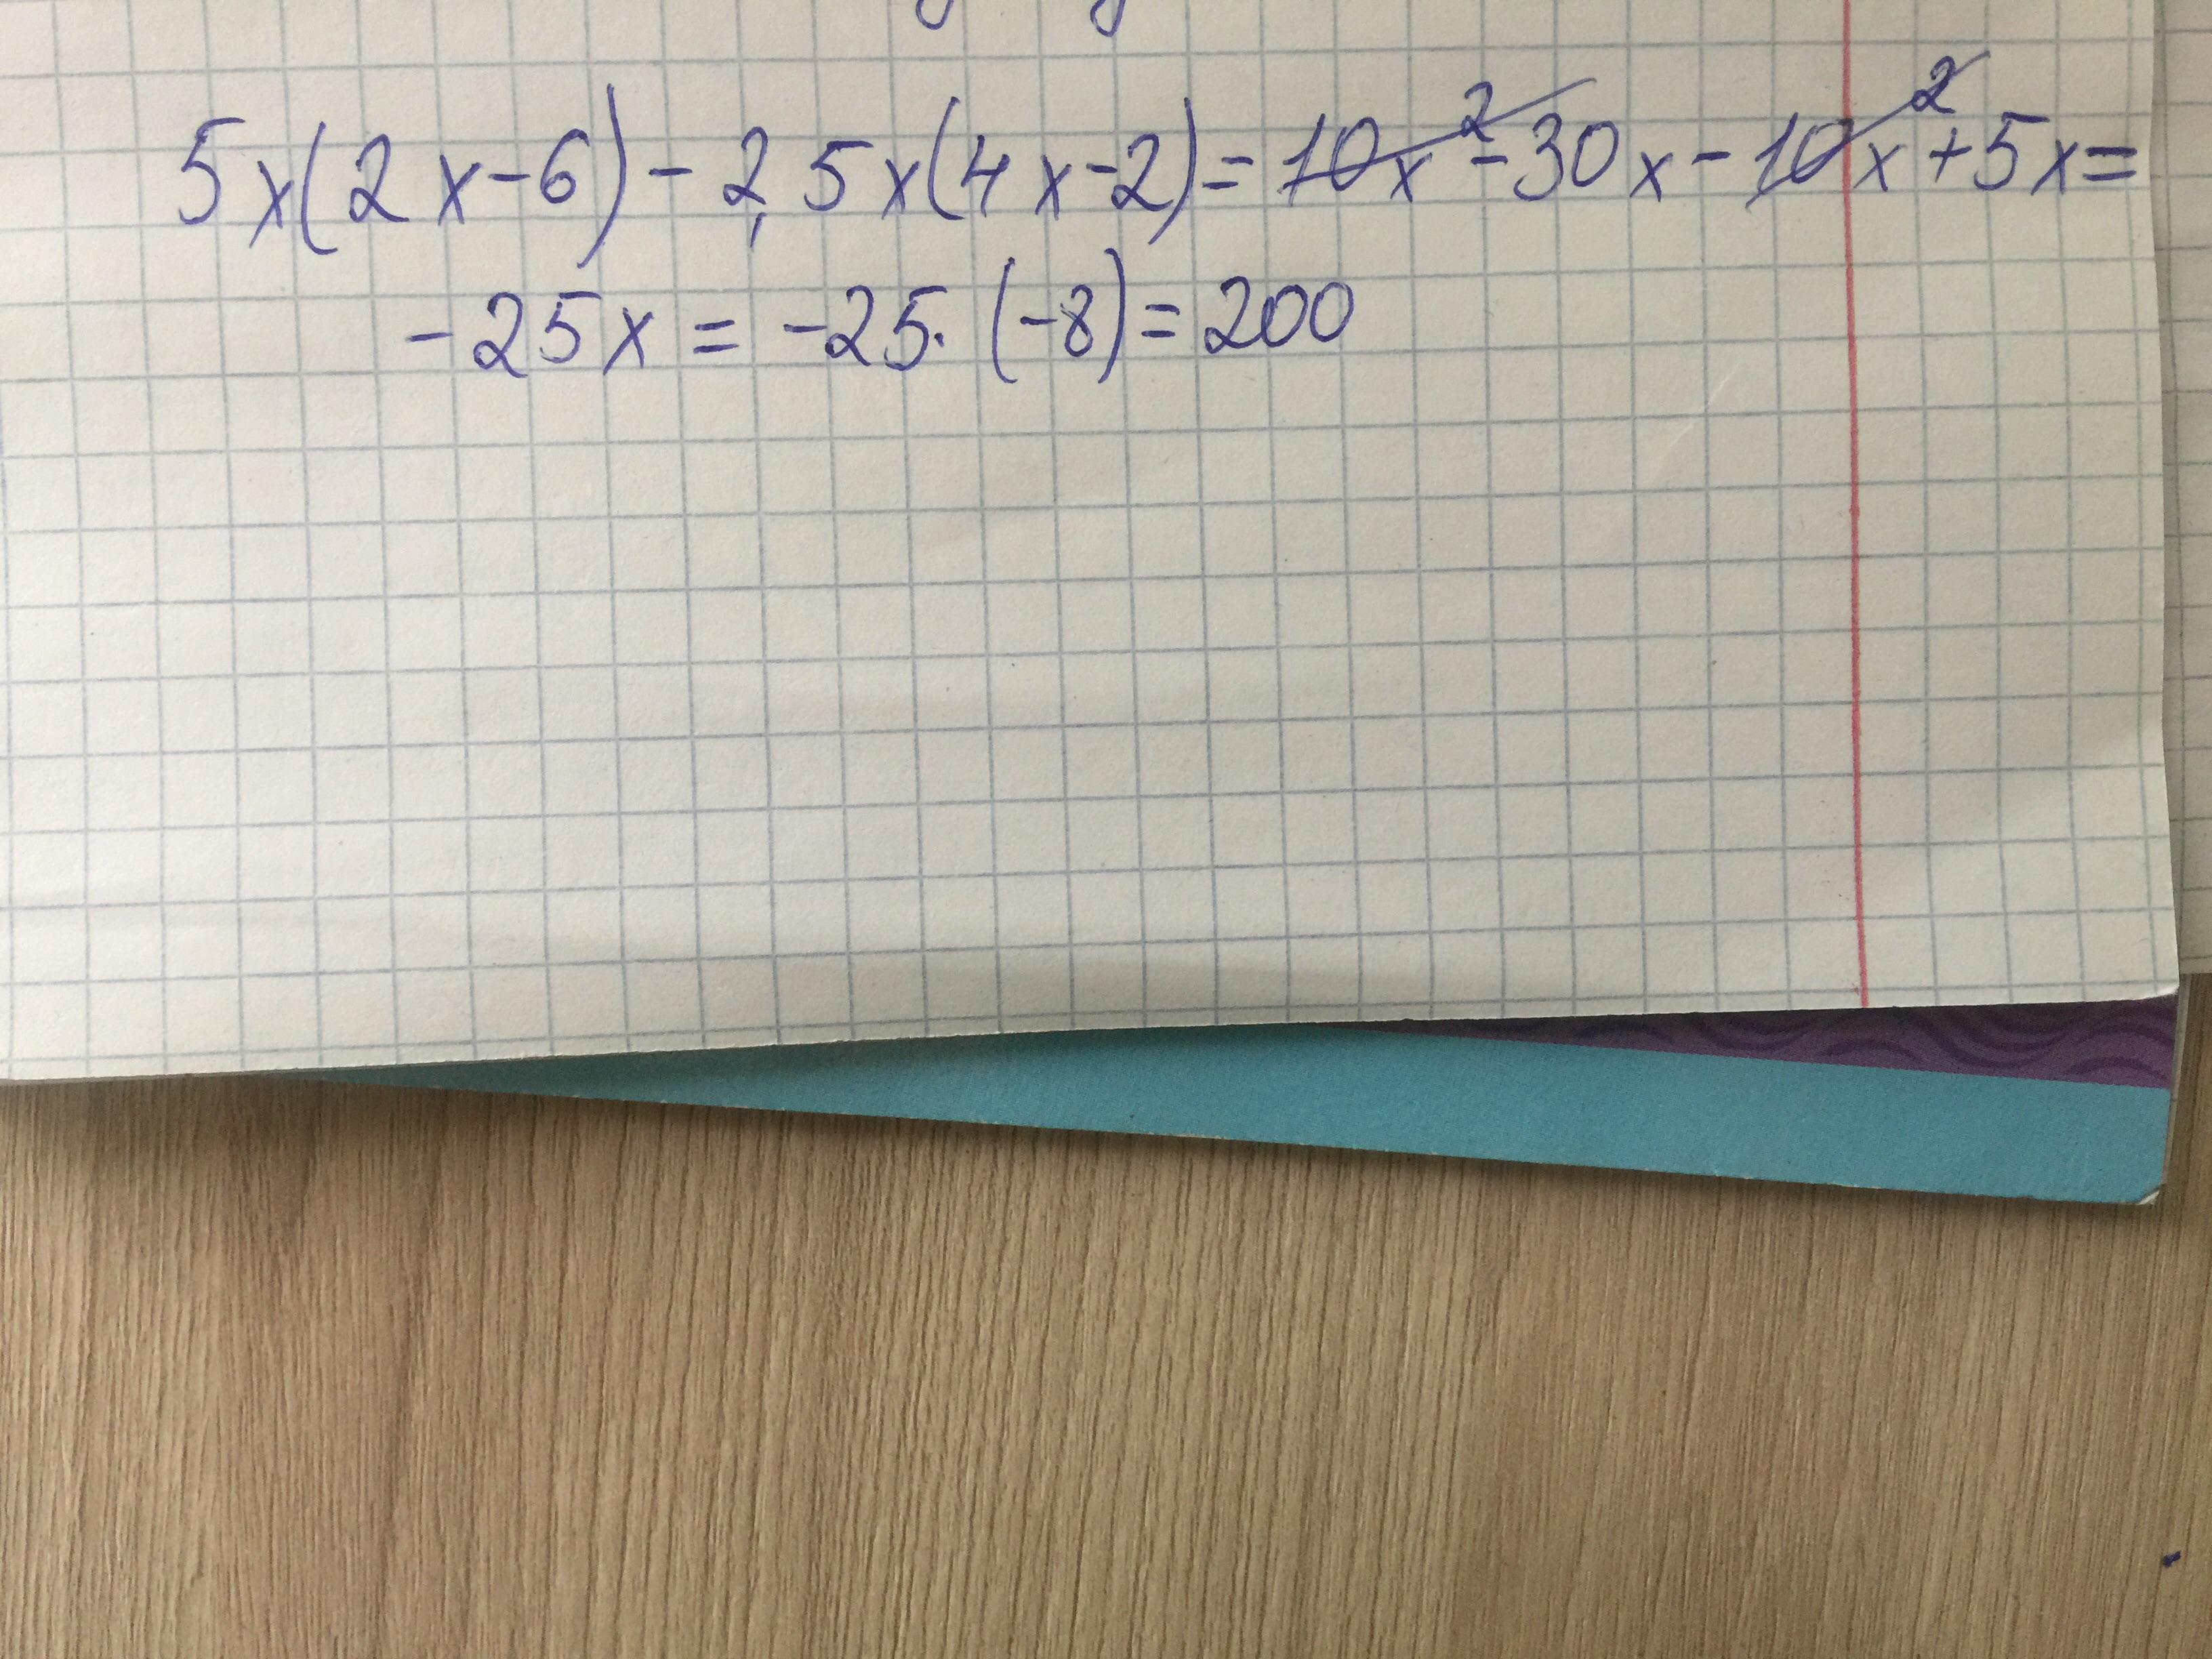 5x(2x-6)-2,5x(4x-2)=10x²-30x-10x²+5x=
-25x=-25·(-8)=200